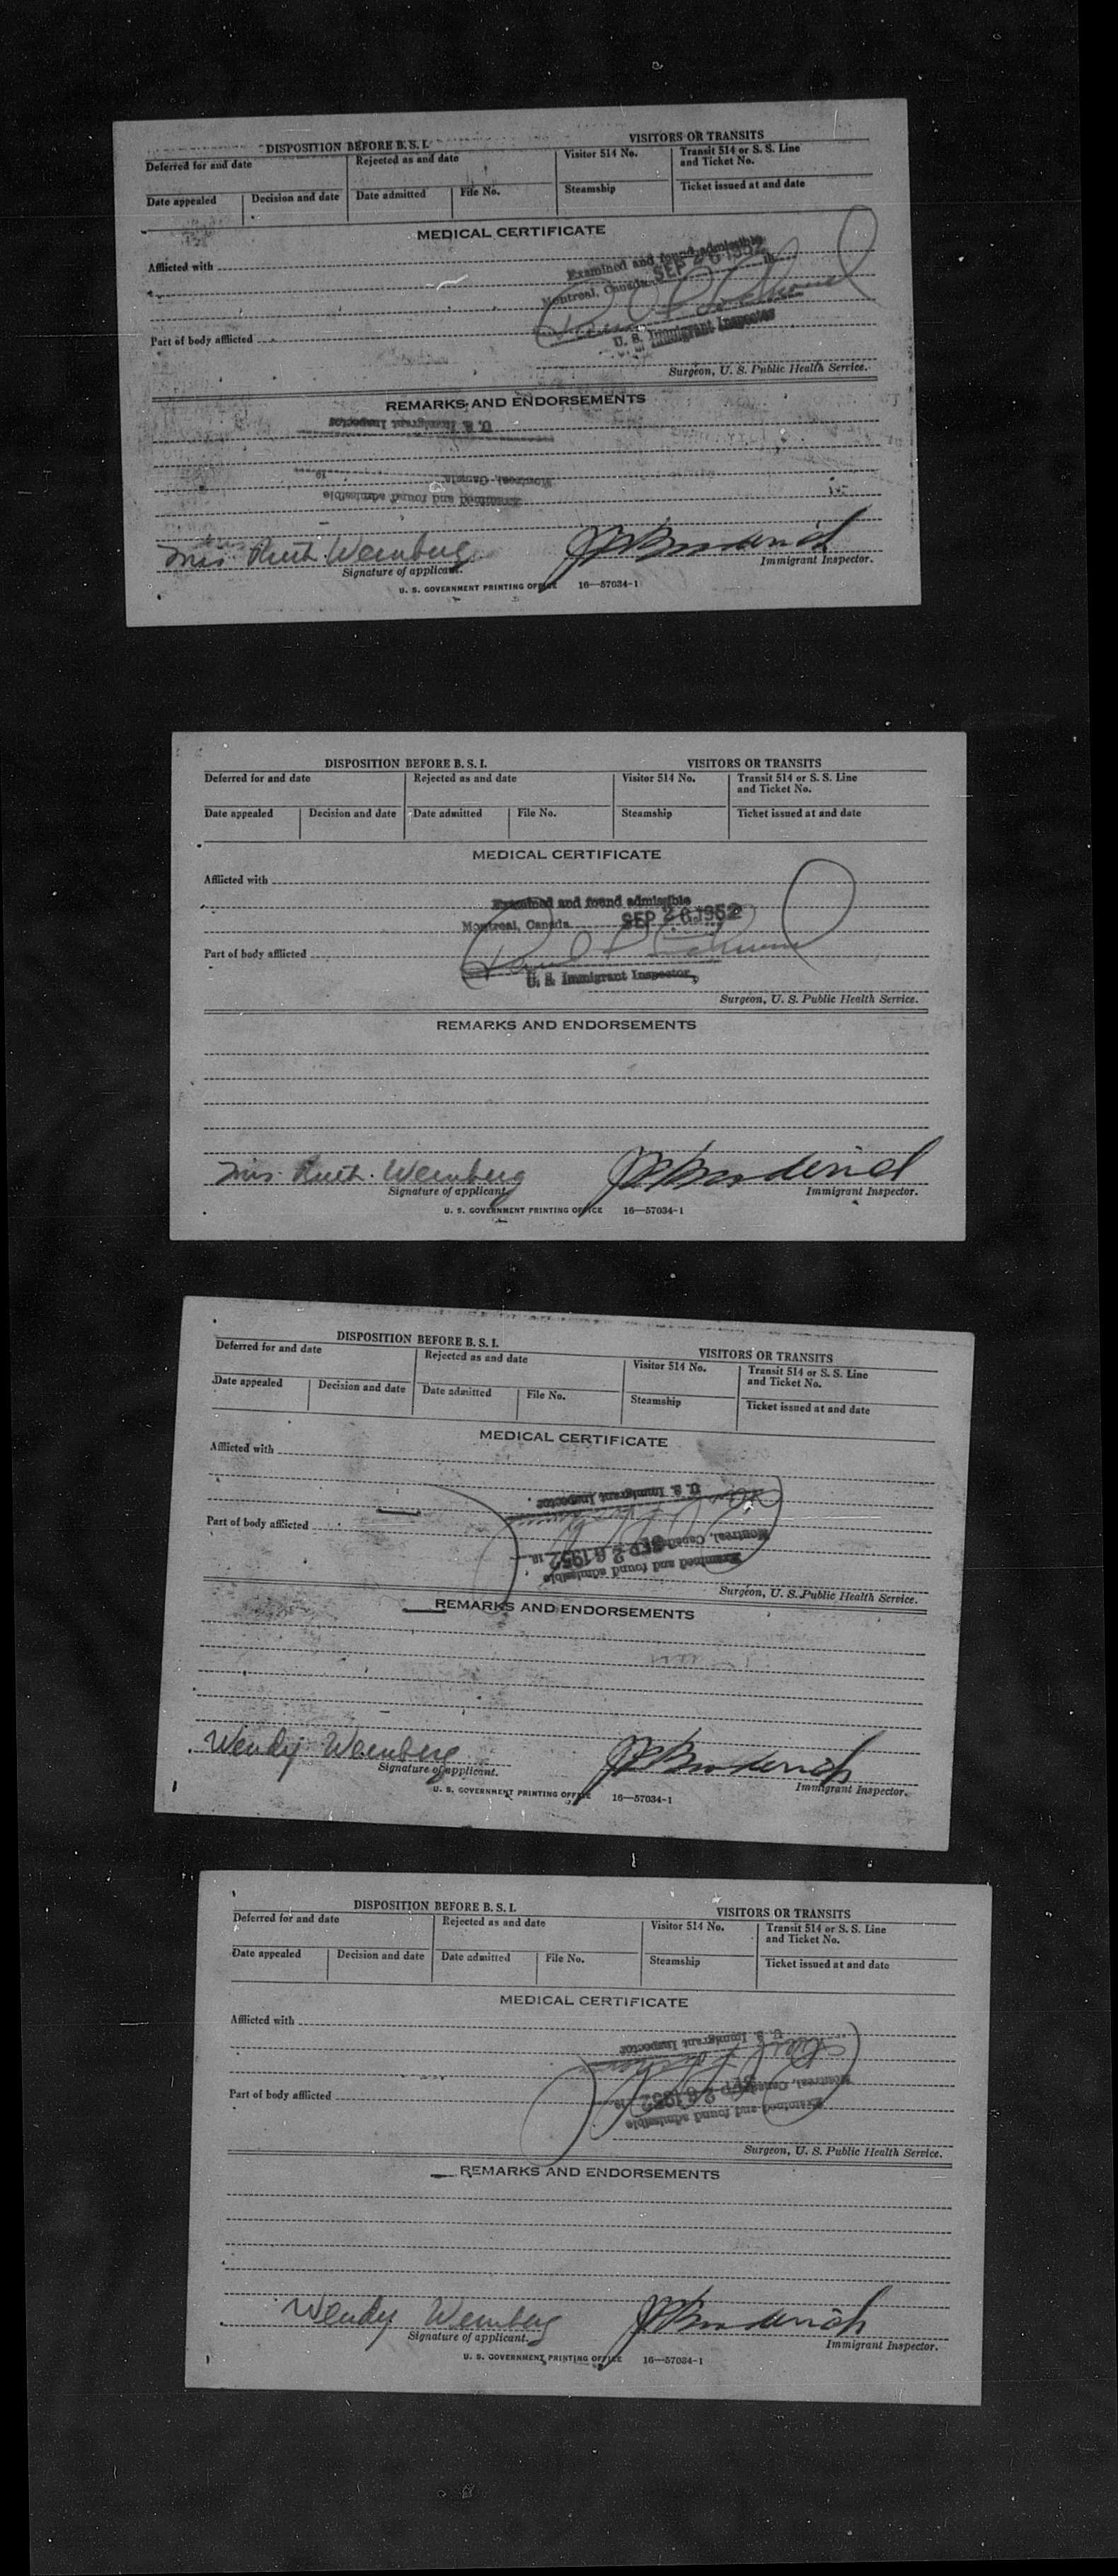 DISPOSITION BEFORE B. S. I. VISITORS OR TRANSITS
Deferred for and date Rejected as and date Visitor 514 No. Transit 514 or S. S. Line and Ticket No.
Date appealed Decision and date Date admitted File No. Steamship Ticket issued at and date
MEDICAL CERTIFICATE
Afflicted with
Examined and found admissible
Montreal, Canada SEP 26 1952
Part of body afflicted
U. S. Immigrant Inspector
Surgeon, U. S. Public Health Service.
REMARKS AND ENDORSEMENTS
U. S. Immigrant Inspector
Montreal, Canada 19
Examined and found admissible
Mrs Ruth Weinberg
Signature of applicant. Immigrant Inspector.
U. S. GOVERNMENT PRINTING OFFICE 16—57034-1
DISPOSITION BEFORE B. S. I. VISITORS OR TRANSITS
Deferred for and date Rejected as and date Visitor 514 No. Transit 514 or S. S. Line and Ticket No.
Date appealed Decision and date Date admitted File No. Steamship Ticket issued at and date
MEDICAL CERTIFICATE
Afflicted with
Examined and found admissible
Montreal, Canada SEP 26 1952
Part of body afflicted
U. S. Immigrant Inspector
Surgeon, U. S. Public Health Service.
REMARKS AND ENDORSEMENTS
Mrs. Ruth. Weinberg
Signature of applicant. Immigrant Inspector.
U. S. GOVERNMENT PRINTING OFFICE 16—57034-1
DISPOSITION BEFORE B. S. I. VISITORS OR TRANSITS
Deferred for and date Rejected as and date Visitor 514 No. Transit 514 or S. S. Line and Ticket No.
Date appealed Decision and date Date admitted File No. Steamship Ticket issued at and date
MEDICAL CERTIFICATE
Afflicted with
U. S. Immigrant Inspector
Part of body afflicted
Montreal, Canada SEP 26 1952 19
Examined and found admissible
Surgeon, U. S. Public Health Service.
REMARKS AND ENDORSEMENTS
Wendy Weinberg
Signature of applicant. Immigrant Inspector.
U. S. GOVERNMENT PRINTING OFFICE 16—57034-1
DISPOSITION BEFORE B. S. I. VISITORS OR TRANSITS
Deferred for and date Rejected as and date Visitor 514 No. Transit 514 or S. S. Line and Ticket No.
Date appealed Decision and date Date admitted File No. Steamship Ticket issued at and date
MEDICAL CERTIFICATE
Afflicted with
U. S. Immigrant Inspector
Part of body afflicted
Montreal, Canada SEP 26 1952 19
Examined and found admissible
Surgeon, U. S. Public Health Service.
REMARKS AND ENDORSEMENTS
Wendy Weinberg
Signature of applicant. Immigrant Inspector.
U. S. GOVERNMENT PRINTING OFFICE 16—57034-1